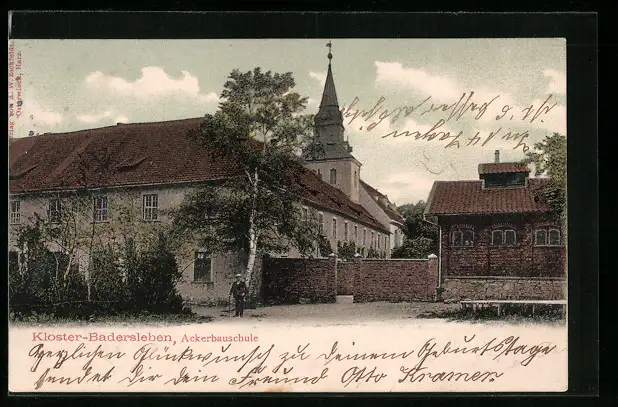 Verlag von A. W. Zickfeldt,
Osterwieck, Harz.
Kloster-Badersleben, Ackerbauschule
Herzlichen Glückwunsch zu Deinem Geburtstage
sendet Dir dein Freund Otto Kramer